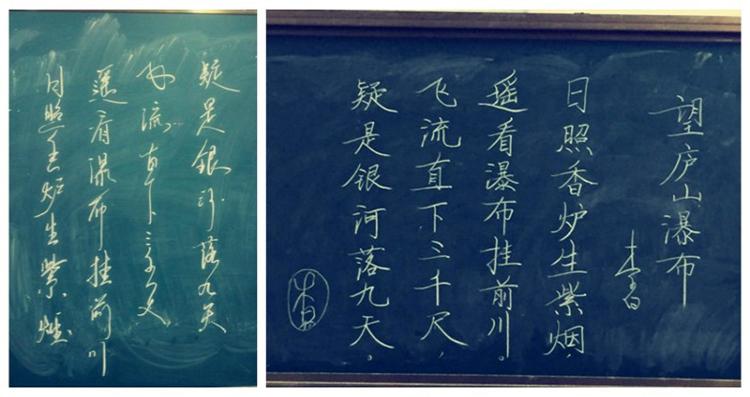 日照香炉生紫烟
遥看瀑布挂前川
飞流直下三千尺
疑是银河落九天
望庐山瀑布
李白
日照香炉生紫烟,
遥看瀑布挂前川。
飞流直下三千尺,
疑是银河落九天。